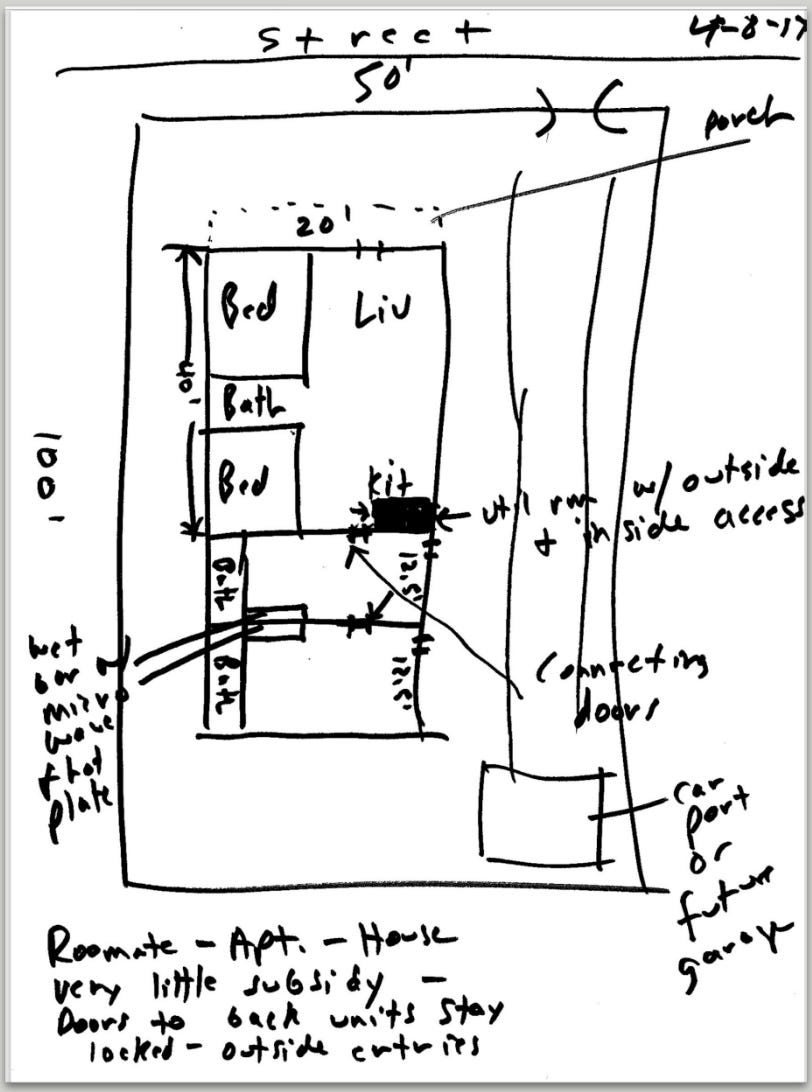 street
4-8-17
50'
porch
20'
Bed
Liv
40'
Bath
Bed
Kit
100'
util rm w/ outside
+ inside access
Bath
12.5'
Bath
12.5'
wet
bar
micro
wave
+ hot
plate
Connecting
doors
car
port
or
future
garage
Roomate - Apt. - House
very little subsidy -
Doors to back units stay
locked - outside entries